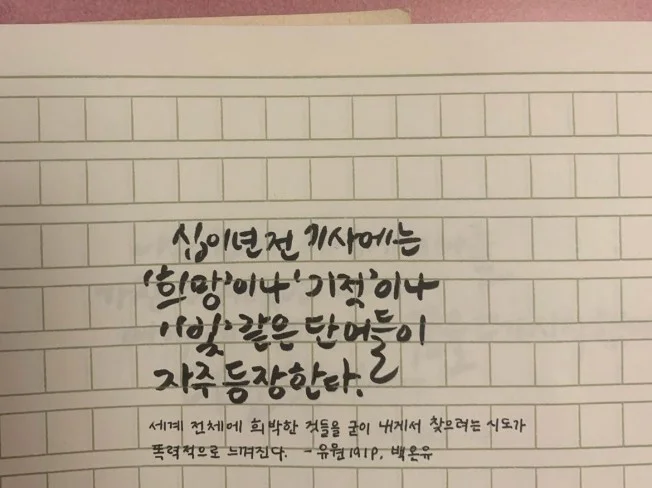 십이년 전 기사에는
'희망'이나 '기적'이나
'빛' 같은 단어들이
자주 등장한다.
세계 전체에 희박한 것들을 굳이 내게서 찾으려는 시도가
폭력적으로 느껴진다. - 유원 191P, 백온유